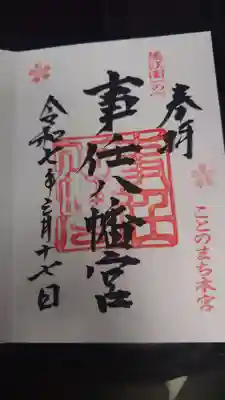 奉拝
遠江国一の宮
事任八幡宮
ことのまち本宮
令和七年三月十七日